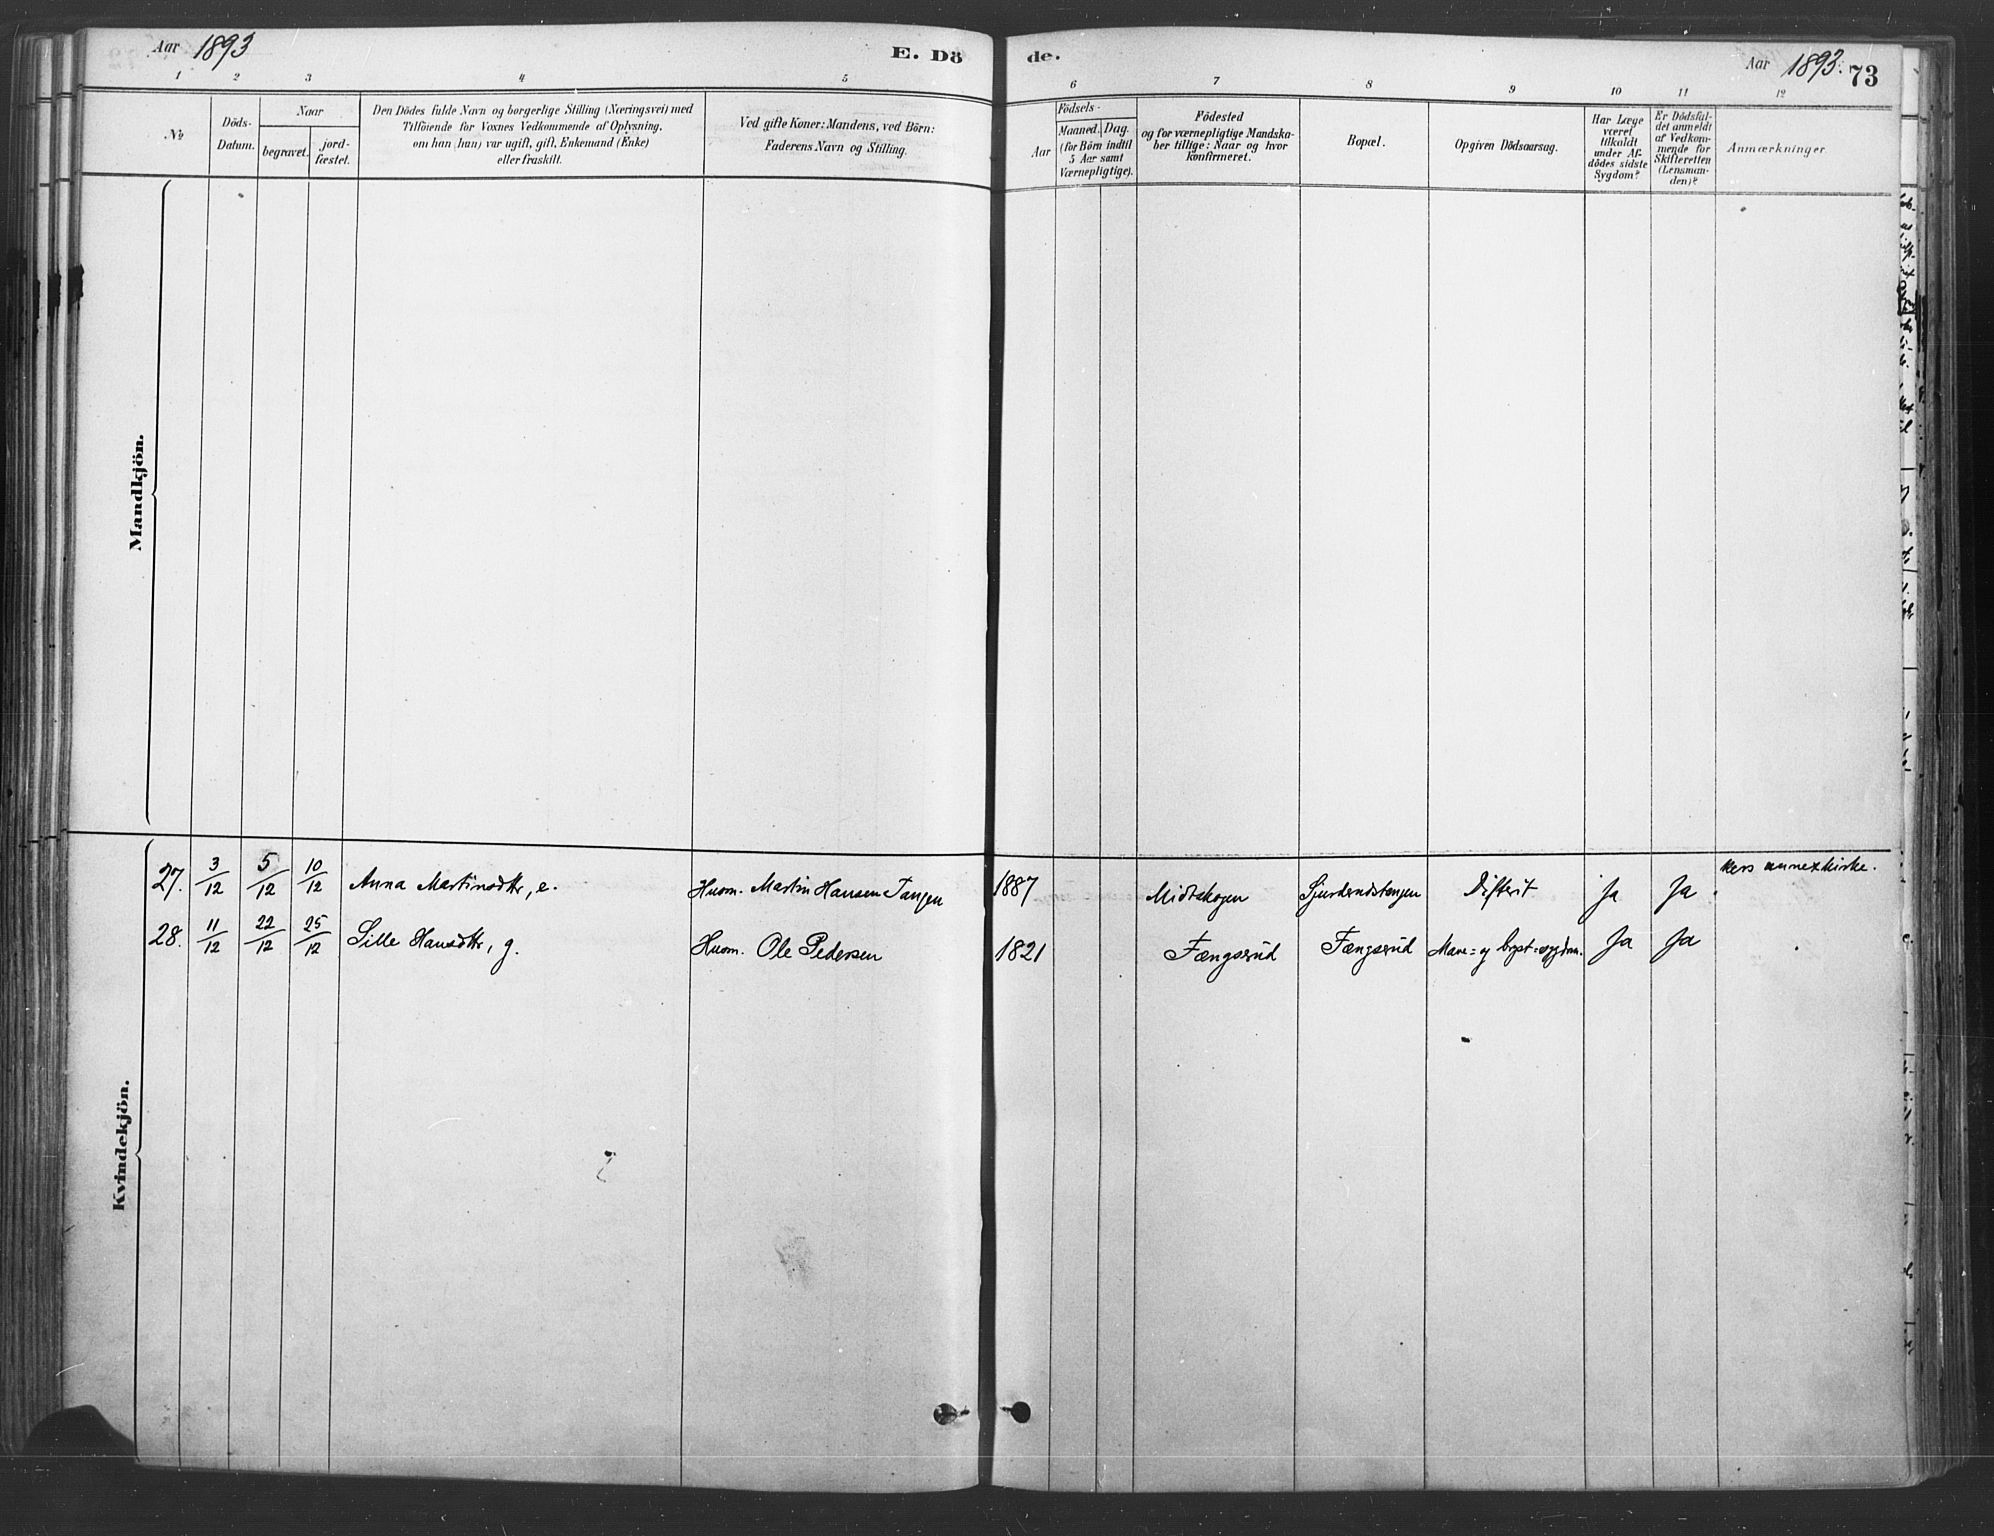 Aar 1893
E. Dö
de.
Aar 1893. 73
1 2 3 4 5
6 7 8 9 10 11 12
No
Döds-
Datum.
Naar
begravet.
jord-
fæstet.
Den Dödes fulde Navn og borgerlige Stilling (Næringsvei) med
Tilföiende for Voxnes Vedkommende af Oplysning,
om han (hun) var ugift, gift, Enkemand (Enke)
eller fraskilt.
Ved gifte Koner: Mandens, ved Börn:
Faderens Navn og Stilling.
Födsels-
Aar
Maaned.
Dag.
(for Börn indtil
5 Aar samt
Værnepligtige).
Födested
og for værnepligtige Mandska-
ber tillige: Naar og hvor
konfirmeret.
Bopæl.
Opgiven Dödsaarsag.
Har Læge
været
tilkaldt
under Af-
dödes sidste
Sygdom?
Er Dödsfal-
det anmeldt
af Vedkom-
mende for
Skifteretten
(Lensman-
den)?
Anmærkninger.
Mandkjön.
Kvindekjön.
27. 3/12 5/12 10/12 Anna Martinsdtr, e. Husm. Martin Hansen Tangen 1887 Midtskogen Difterit Ja Ja annexkirke.
28. 11/12 22/12 25/12 Sille Hansdtr, g. Husm. Ole Pedersen 1821 Fængsrud Fængsrud Mave= og bryst=sygdom. Ja Ja